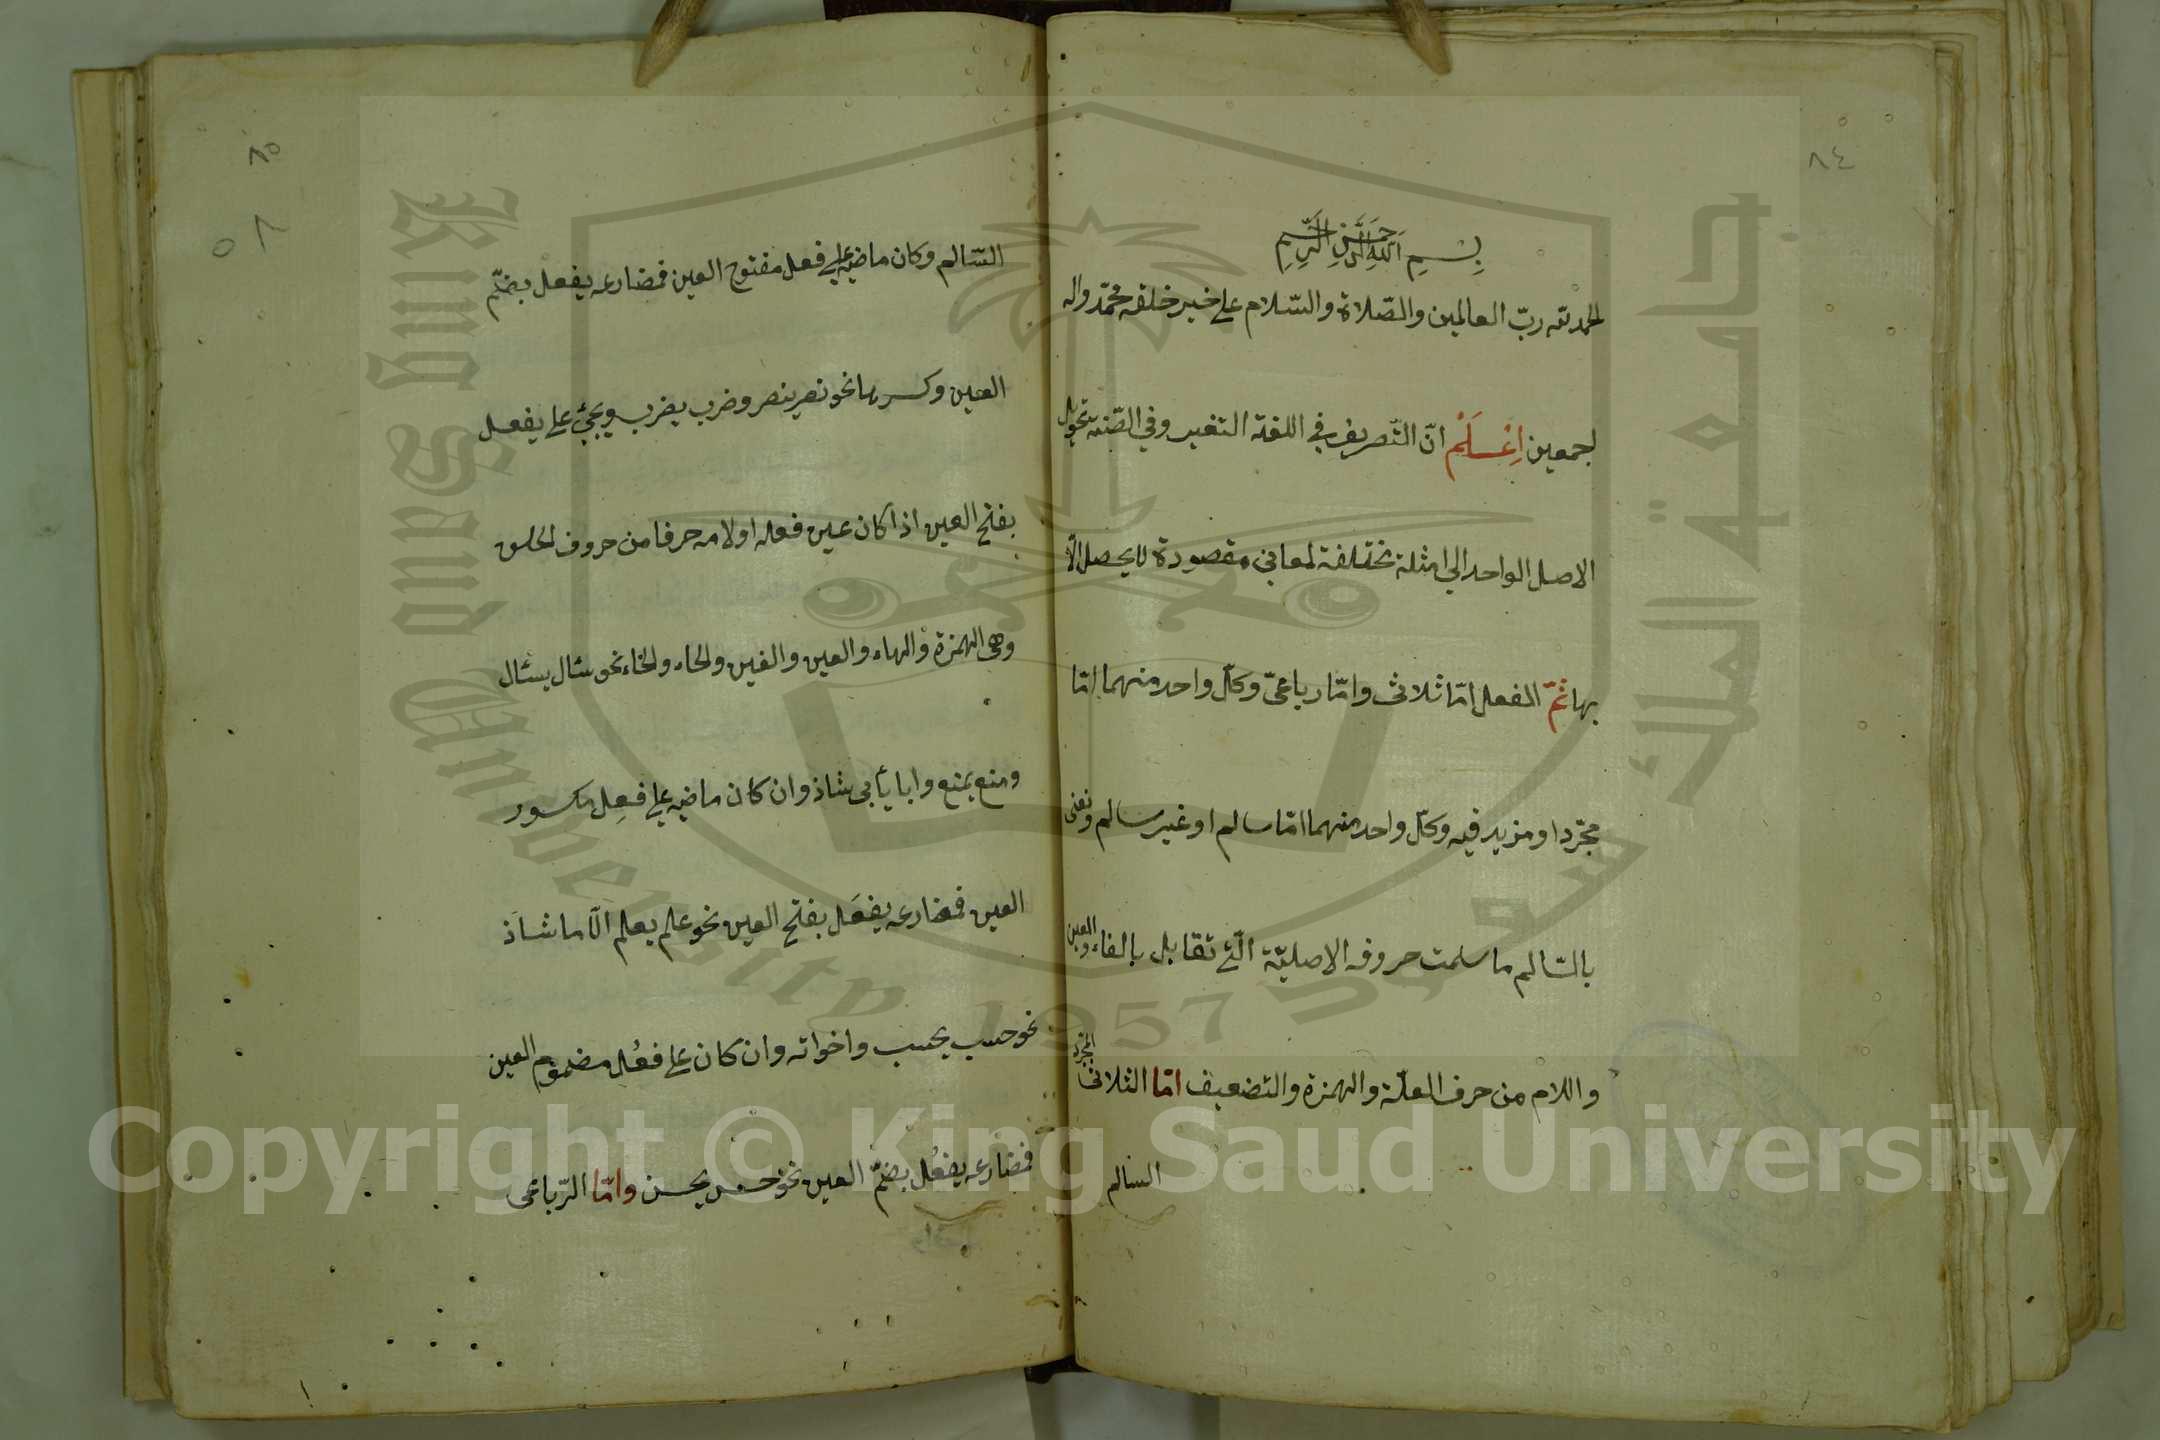 ٨٤
بِسْمِ اللَّهِ الرَّحْمَنِ الرَّحِيمِ
الحمد لله ربّ العالمين والصّلاة والسّلام على خير خلقه محمّد واله
اجمعين اِعْلَمْ انّ التّصريف في اللغة التغير وفي الصّنعة تحويل
الاصل الواحد الي امثلة مختلفة لمعاني مقصودة لا يحصل الّا
بها ثمّ الفعل امّا ثلاثى وامّا رباعىّ وكلّ واحد منهما امّا
مجرّد او مزيد فيه وكلّ واحد منهما امّا سالم او غير سالم ونعنى
بالسّالم ما سلمت حروفه الاصليّة الّتي تقابل بالفاء والعين
واللام من حرف العلّة والهمزة والتضعيف امّا الثلاثى المجرّد
السالم
٨٥
٥٨
السّالم وكان ماضيه علي فعل مفتوح العين فمضارعه يفعل بضمّ
العين وكسرها نحو نصر ينصر وضرب يضرب ويجئ على يفعل
بفتح العين اذا كان عين فعله او لامه حرفا من حروف الحلق
وهى الهمزة والهاء والعين والغين والحاء والخاء نحو سئال يسئال
ومنع يمنع وابا يأبى شاذ وان كان ماضيه علي فعِل مكسور
العين فمضارعه يفعَل بفتح العين نحو علم يعلم الّا ما شاذ
نحو حسب يحسب واخواته وان كان على فعُل مضموم العين
فمضارعه يفعُل بضمّ العين نحو حسن يحسن وامّا الرّباعى
جامعة الملك سعود
King Saud University
1957
Copyright © King Saud University